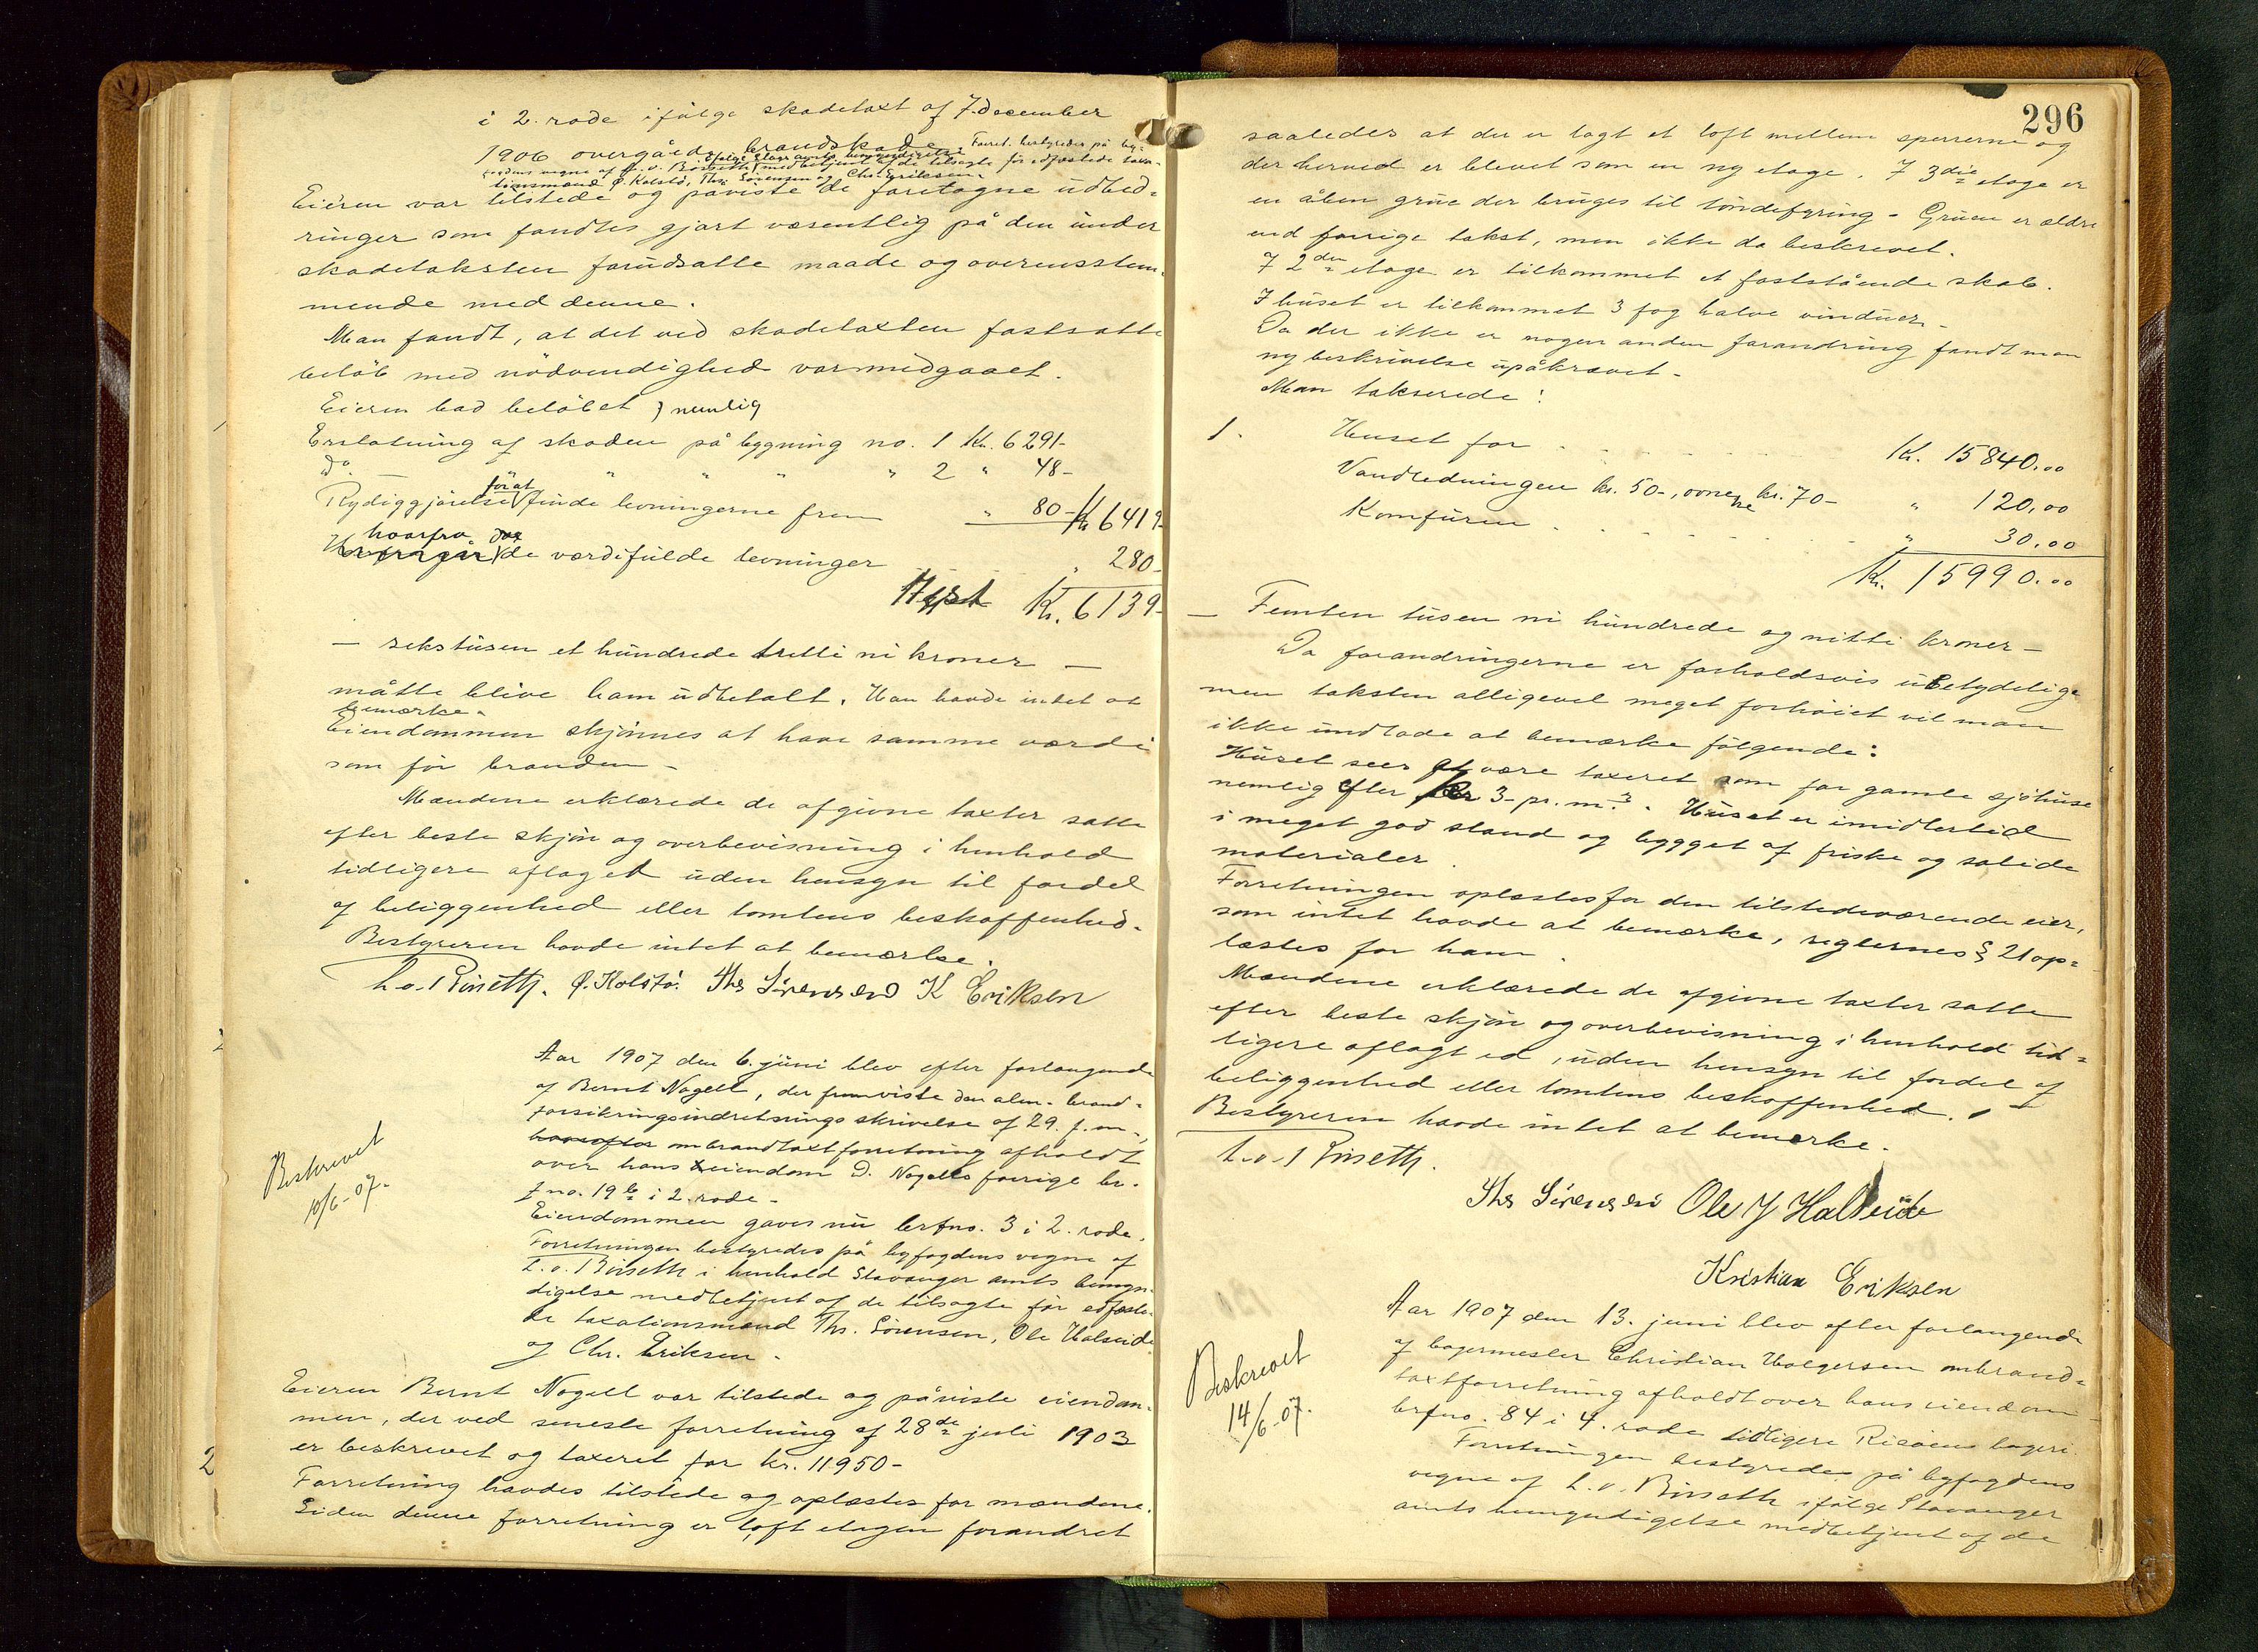 i 2. rode ifølge skadetaxt af 7. december
1906 overgåede brandskade. Forret. bestyredes på by-
fogdens vegne af L. v. Börseth ifølge Stavr. amts bemyndigelse med betjent af de tilsagte før edfæstede taxa-
tionsmænd Ø. Kolstö, Ths. Sörensen og Chr. Eriksen.
Eieren var tilstede og påviste de foretagne udbed-
ringer som fandtes gjort væsentlig på den under
skadetaksten forudsatte maade og overensstem-
mende med denne.
Man fandt, at det ved skadetaxten fastsatte
beløb med nödvendighed var medgaaet.
Eieren bad beløbet, nemlig
Erstatning af skaden på bygning no. 1 Kr. 6291-
do — " " " " 2 " 48-
Rydiggjörelse för at finde levningerne frem " 80- Kr. 6419-
hvorfra de værdifulde levninger " 280-
Kr. 6139-
— sekstusen et hundrede tretti ni kroner —
måtte blive ham udbetalt. Han havde intet at
bemærke.
Eiendommen skjønnes at have samme værdi
som før branden -
Mændene erklærede de afgivne taxter satte
efter beste skjön og overbevisning i henhold
tidligere aflaget uden hensyn til fordel
af beliggenhed eller tomtens beskaffenhed.
Bestyreren havde intet at bemærke.
L. v. Börseth. Ø. Kolstö. Ths Sörensen K Eriksen
Aar 1907 den 6. juni blev efter forlangende
af Bernt Nagell, der fremviste den alm. brand-
forsikringsindretnings skrivelse af 29. f. m.,
hvorefter ombrandtaxtforretning afholdt
over hans eiendom D. Nagells forrige br.
f no. 19 b i 2. rode -
Eiendommen gaves nu brfno. 3 i 2. rode.
Forretningen bestyredes på byfogdens vegne af
L. v. Börseth i henhold Stavanger amts bemyn-
digelse medbetjent af de tilsagte før edfæste-
de taxationsmænd Ths. Sörensen, Ole Halseide
og Chr. Eriksen -
Beskrevet
10/6-07.
Eieren Bernt Nagell var tilstede og påviste eiendom-
men, der ved seneste forretning af 28de juli 1903
er beskrevet og taxeret for kr. 11950-
Forretning havdes tilstede og oplæstes for mændene.
Siden denne forretning er loftetagen forandret
296
saaledes at der er lagt et loft mellem sperrerne og
der herved er blevet som en ny etage. I 3die etage er
en åben grue der bruges til töndefyring - Gruen er ældre
end forrige takst, men ikke da beskrevet.
I 2den etage er tilkommet et faststående skab.
I huset er tilkommet 3 fag halve vinduer -
Da der ikke er nogen anden forandring fandt man
ny beskrivelse upåkrævet -
Man takserede:
1. Huset for . . . . . . Kr. 15840.00
Vandledningen kr. 50-, ovnene kr. 70- " 120,00
Komfüren . . . . . . " 30.00
Kr. 15990.00
— Femten tusen ni hundrede og nitti kroner —
Da forandringerne er forholdsvis ubetydelige
men taksten alligevel meget forhöiet vil man
ikke undlade at bemærke følgende:
Huset sees at være taxeret som for gamle sjöhuse
nemlig efter kr 3- pr. m3. Huset er imidlertid
i meget god stand og bygget af friske og solide
materialer.
Forretningen oplæstes for den tilstedeværende eier,
som intet havde at bemærke, reglernes § 21 op-
læstes for ham.
Mændene erklærede de afgivne taxter satte
efter beste skjön og overbevisning i henhold tid-
ligere aflagt ed, uden hensyn til fordel af
beliggenhed eller tomtens beskaffenhed.
Bestyreren havde intet at bemærke.
L. v. Börseth.
Ths Sörensen Ole J Halseide
Kristian Eriksen
Aar 1907 den 13. juni blev efter forlangende
af bagermester Christian Holgersen ombrand-
taxtforretning afholdt over hans eiendom
brfno. 84 i 4. rode tidligere Risöens bageri.
Forretningen bestyredes på byfogdens
vegne af L. v. Börseth ifølge Stavanger
amts bemyndigelse medbetjent af de
Beskrevet
14/6-07.